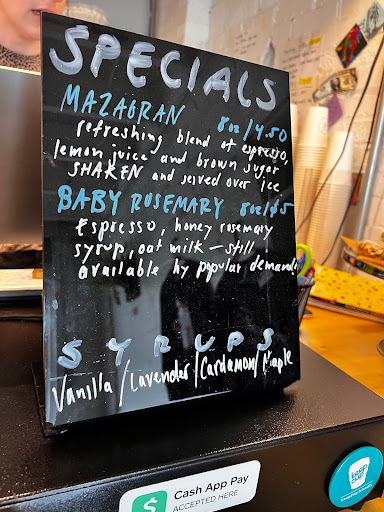 SPECIALS
MAZAGRAN 8oz/4.50
refreshing blend of espresso,
lemon juice and brown sugar
SHAKEN and served over ice
BABY ROSEMARY 8oz/$5
Espresso, honey rosemary
syrup, oat milk — still
available by popular demand!
SYRUPS
Vanilla/Lavender/Cardamom/Maple
$ Cash App Pay
ACCEPTED HERE